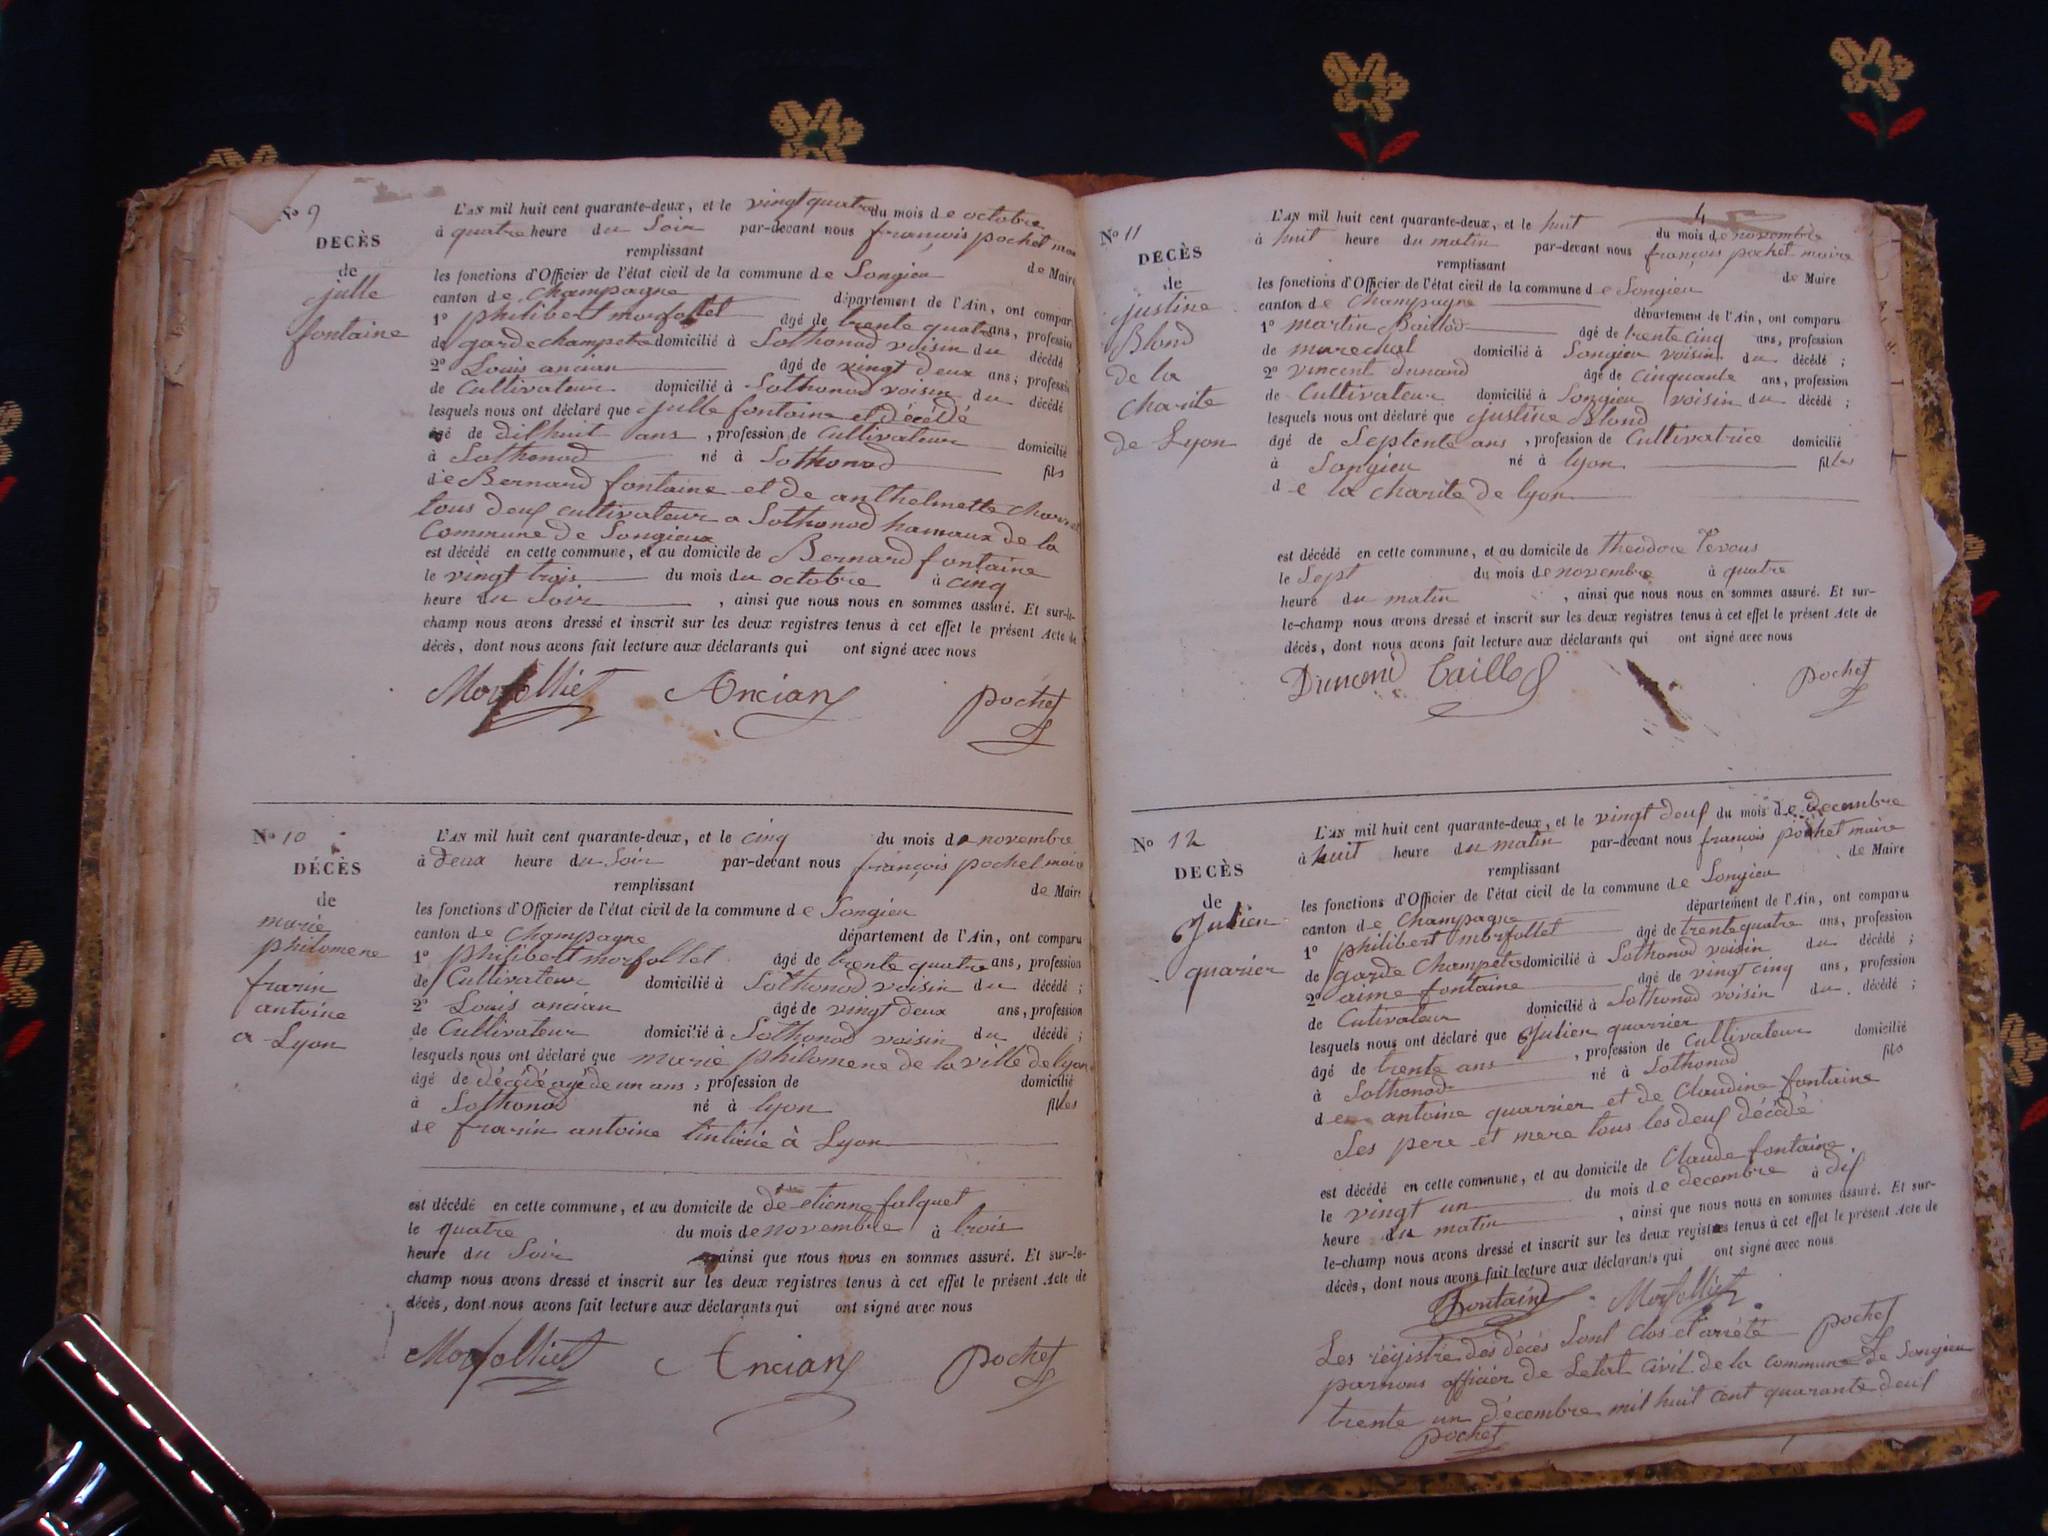 No 9
DECÈS
de
julle
fontaine
L'AN mil huit cent quarante-deux, et le vingt quatre du mois de octobre
à quatre heure du Soir par-devant nous françois pochet
remplissant de Maire
les fonctions d'Officier de l'état civil de la commune de Songieu
canton de Champagne département de l'Ain, ont compar
1o philibert morfollet âgé de trente quatre ans, profession
de garde champetre domicilié à Sothonod voisin du décédé
2o Louis ancian âgé de vingt deux ans; profession
de Cultivateur domicilié à Sothonod voisin du décédé
lesquels nous ont déclaré que julle fontaine et décédé
âgé de dilhuit ans, profession de Cultivateur domicilié
à Sothonod né à Sothonod fils
de Bernard fontaine et de anthelmette
tous deuf cultivateur a Sothonod hamaux de la
Commune de Songieux
est décédé en cette commune, et au domicile de Bernard fontaine
le vingt trois du mois du octobre à cinq
heure du Soir, ainsi que nous nous en sommes assuré. Et sur-le-
champ nous avons dressé et inscrit sur les deux registres tenus à cet effet le présent Acte de
décès, dont nous avons fait lecture aux déclarants qui ont signé avec nous
Morfolliet Ancian pochet
No 10
DÉCÈS
de
marie
philomene
frarin
antoine
a Lyon
L'AN mil huit cent quarante-deux, et le cinq du mois de novembre
à deux heure du Soir par-devant nous françois pochet maire
remplissant de Maire
les fonctions d'Officier de l'état civil de la commune de Songieu
canton de Champagne département de l'Ain, ont comparu
1o philibert morfollet âgé de trente quatre ans, profession
de Cultivateur domicilié à Sothonod voisin du décédé ;
2o Louis ancian âgé de vingt deux ans, profession
de Cultivateur domicilié à Sothonod voisin du décédé ;
lesquels nous ont déclaré que marie philomene de la ville de lyon
âgé de décédé agé de un ans ; profession de domicilié
à Sothonod né à lyon filles
de frarin antoine à Lyon
est décédé en cette commune, et au domicile de de etienne fulquet
le quatre du mois de novembre à trois
heure du Soir ainsi que nous nous en sommes assuré. Et sur-le-
champ nous avons dressé et inscrit sur les deux registres tenus à cet effet le présent Acte de
décès, dont nous avons fait lecture aux déclarants qui ont signé avec nous
Morfolliet Ancian pochet
4
No 11
DECÈS
de
justine
Blond
de la
charite
de Lyon
L'AN mil huit cent quarante-deux, et le huit du mois de novembre
à huit heure du matin par-devant nous françois pochet maire
remplissant de Maire
les fonctions d'Officier de l'état civil de la commune de Songieu
canton de Champagne département de l'Ain, ont comparu
1o martin Baillod âgé de trente cinq ans, profession
de marechal domicilié à Songieu voisin du décédé ;
2o vincent dunand âgé de cinquante ans, profession
de Cultivateur domicilié à Songieu voisin du décédé ;
lesquels nous ont déclaré que justine Blond
âgé de Septente ans, profession de Cultivatrice domicilié
à Songieu né à lyon filles
de la charite de lyon
est décédé en cette commune, et au domicile de theodore
le Sept du mois de novembre à quatre
heure du matin, ainsi que nous nous en sommes assuré. Et sur-
le-champ nous avons dressé et inscrit sur les deux registres tenus à cet effet le présent Acte de
décès, dont nous avons fait lecture aux déclarants qui ont signé avec nous
Dunand Baillod pochet
No 12
DECÈS
de
Julien
quarier
L'AN mil huit cent quarante-deux, et le vingt deuf du mois de decembre
à huit heure du matin par-devant nous françois pochet maire
remplissant de Maire
les fonctions d'Officier de l'état civil de la commune de Songieu
canton de Champagne département de l'Ain, ont comparu
1o philibert morfollet âgé de trente quatre ans, profession
de garde Champetre domicilié à Sothonod voisin du décédé ;
2o aime fontaine âgé de vingt cinq ans, profession
de Cutivateur domicilié à Sothonod voisin du décédé ;
lesquels nous ont déclaré que Julien quarrier
âgé de trente ans, profession de Cultivateur domicilié
à Sothonod né à Sothonod fils
de antoine quarrier et de Claudine fontaine
Ses pere et mere tous les deuf décédé
est décédé en cette commune, et au domicile de Claude fontaine
le vingt un du mois de decembre à dif
heure du matin, ainsi que nous nous en sommes assuré. Et sur-
le-champ nous avons dressé et inscrit sur les deux registres tenus à cet effet le présent Acte de
décès, dont nous avons fait lecture aux déclarants qui ont signé avec nous
Fontaine Morfolliet pochet
Les registre des décès Sont Clos et arrété
par nous officier de Letat civil de la commune de Songieu
trente un décembre mil huit cent quarante deuf
pochet